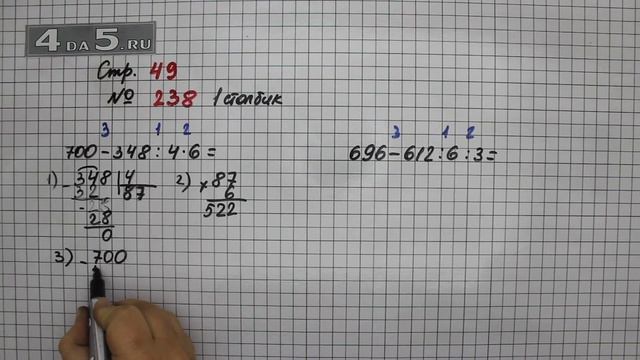 4DA5.RU
Стр. 49
№ 238 1 столбик
3 1 2
700 - 348 : 4 · 6 =
1) - 348 | 4
32 87
- 28
28
0
2) × 87
6
522
3) - 700
3 1 2
696 - 612 : 6 : 3 =